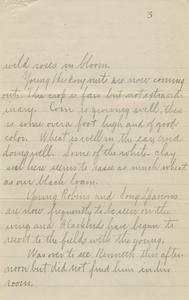 3
wild roses in bloom.
Young Hickory nuts are now coming
out. The crop is fair but not extraord-
inary. Corn is growing well, there
is some over a foot high and of good
color. Wheat is well in the ear and
doing well. Some of the white clay
soil here seems to raise as much wheat
as our black loam.
Young Robins and Song Sparrows
are now frequently to be seen on the
wing and Blackbirds have begun to
resort to the fields with the young.
Was over to see Kenneth this after-
noon but did not find him in his
room.